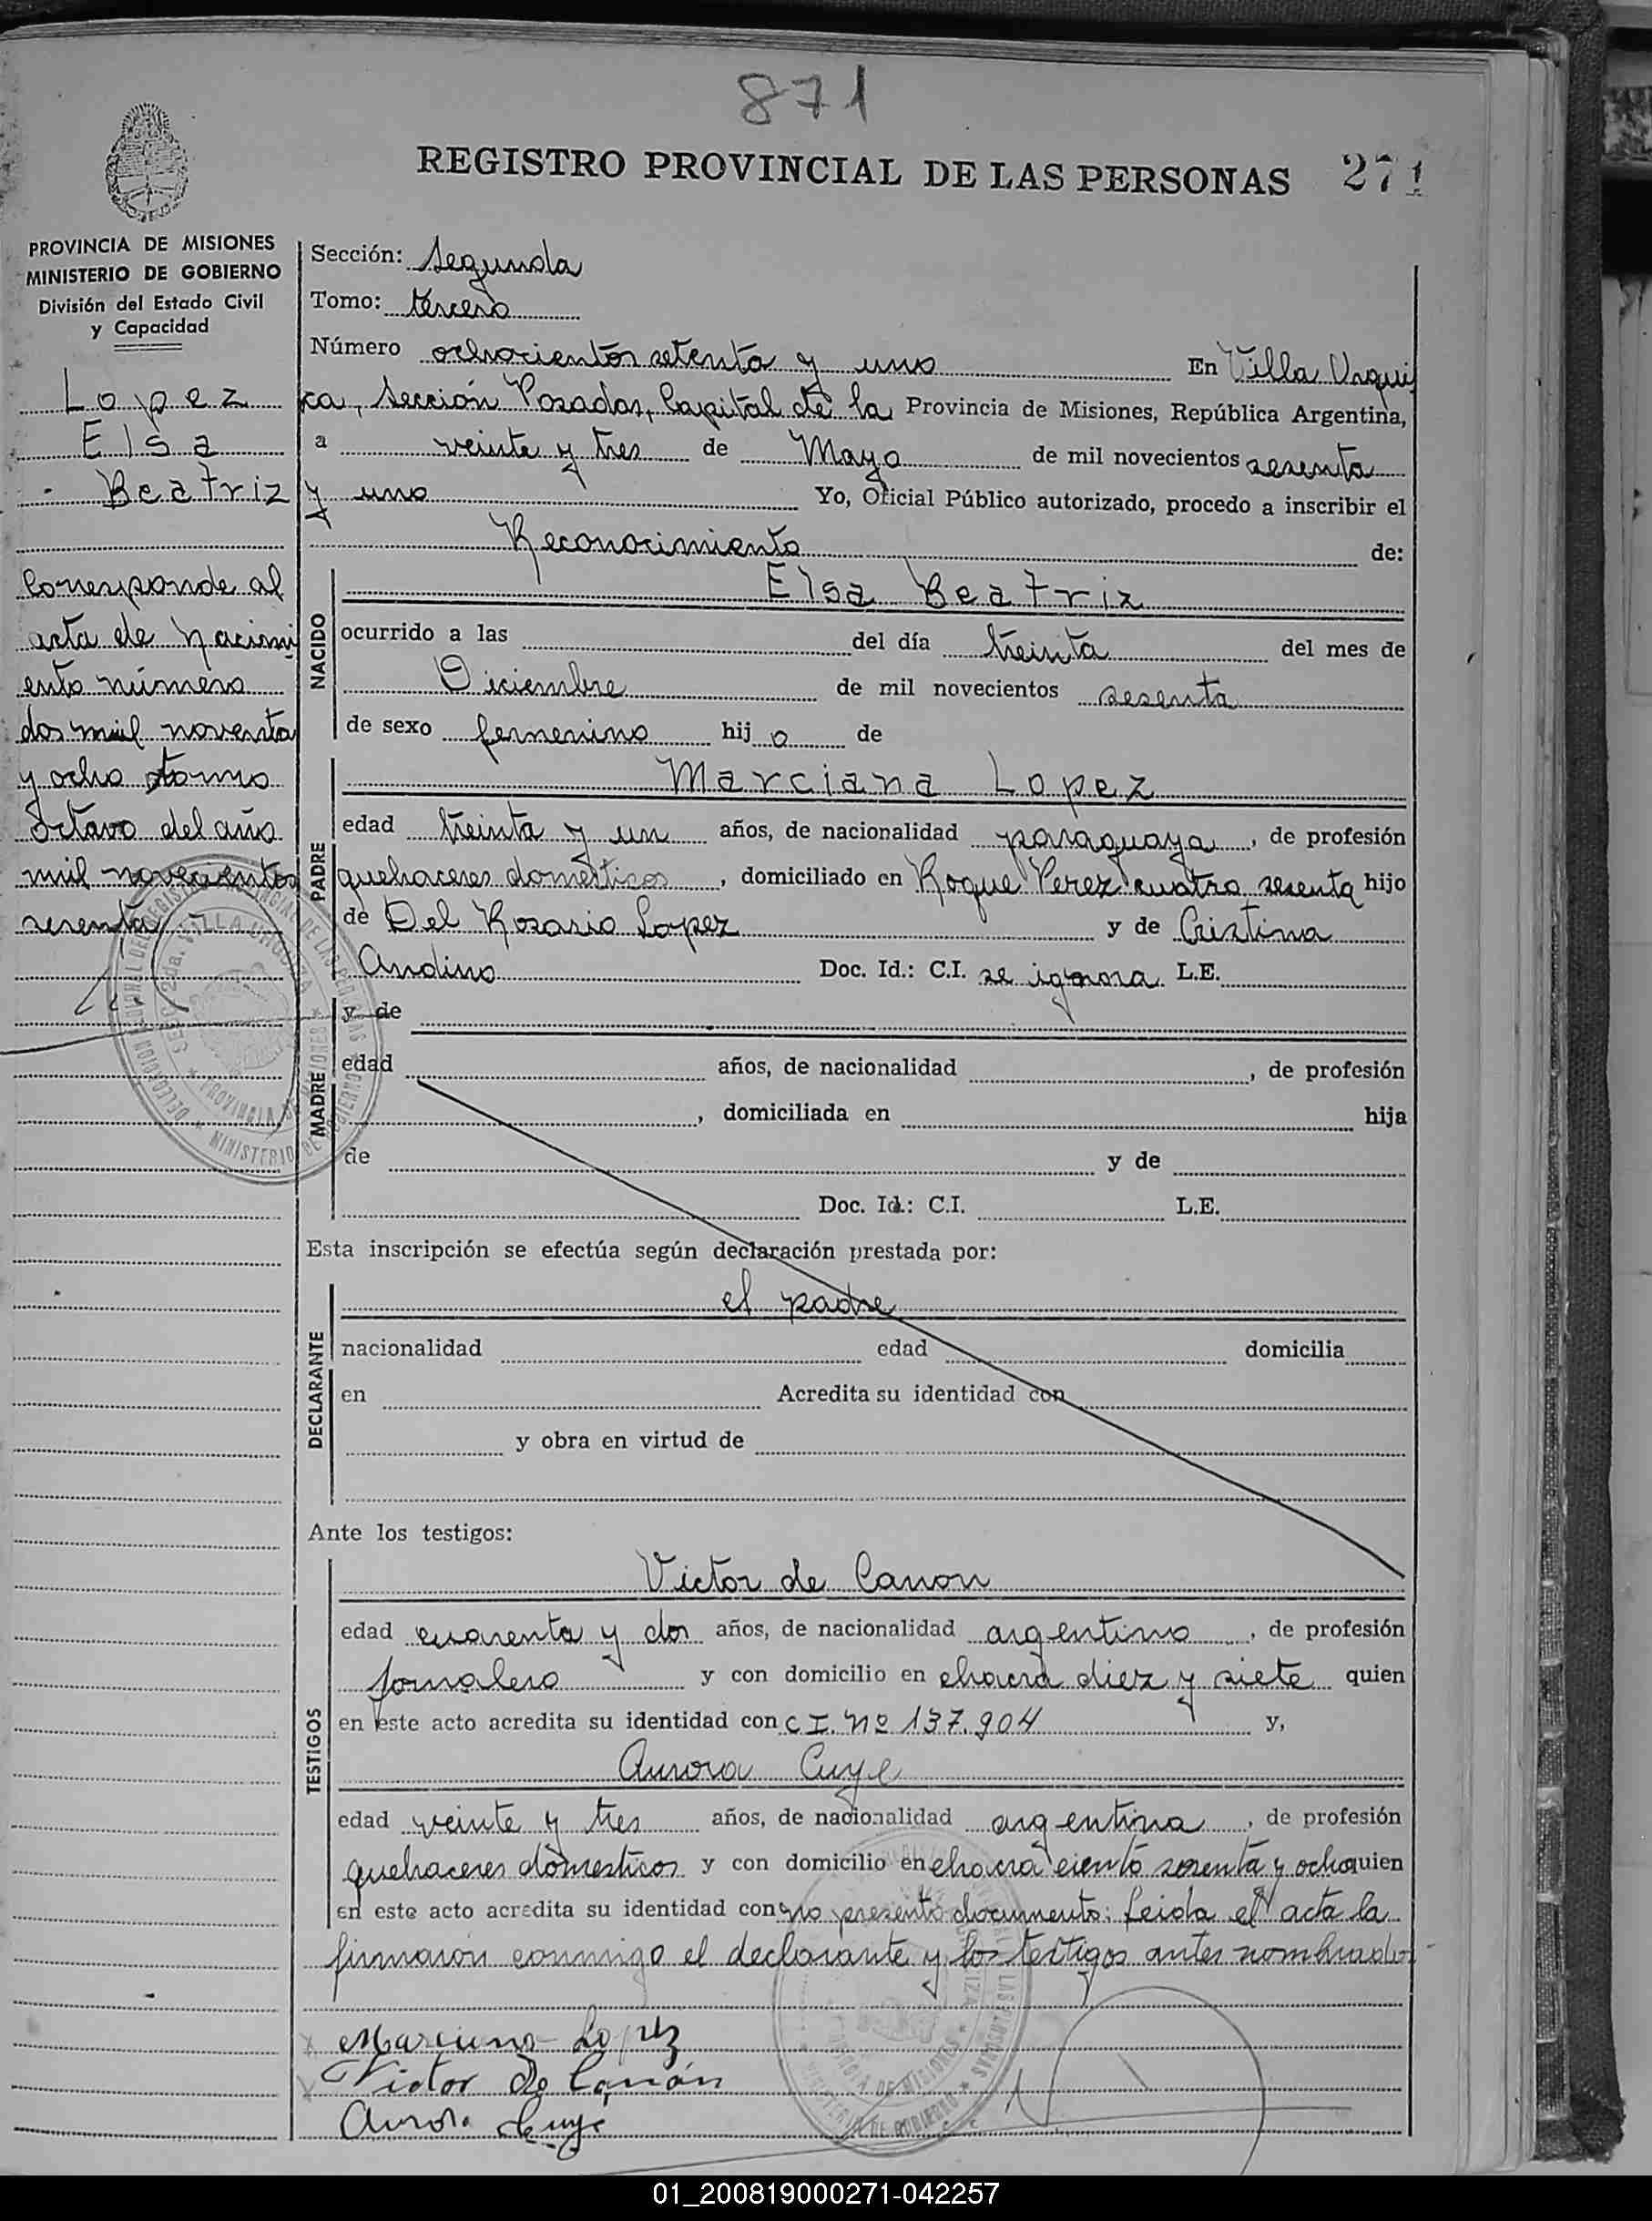 871
REGISTRO PROVINCIAL DE LAS PERSONAS 271
PROVINCIA DE MISIONES
MINISTERIO DE GOBIERNO
División del Estado Civil
y Capacidad
Lopez
Elsa
Beatriz
Corresponde al
acta de Nacimi
ento número
dos mil noventa
y ocho tomo
octavo del año
mil novecientos
sesenta
Sección: Segunda
Tomo: tercero
Número ochocientos setenta y uno En Villa Urqui
za, Sección Posadas, Capital de la Provincia de Misiones, República Argentina,
a veinte y tres de Mayo de mil novecientos sesenta
y uno Yo, Oficial Público autorizado, procedo a inscribir el
Reconocimiento de:
NACIDO
Elsa Beatriz
ocurrido a las del día treinta del mes de
Diciembre de mil novecientos sesenta
de sexo femenino hij a de
PADRE
Marciana Lopez
edad treinta y un años, de nacionalidad paraguaya, de profesión
quehaceres domesticos, domiciliado en Roque Perez cuatro sesenta hijo
de Del Rosario Lopez y de Cristina
Andino Doc. Id.: C.I. se ignora L.E.
MADRE
y de
edad años, de nacionalidad , de profesión
, domiciliada en hija
de y de
Doc. Id.: C.I. L.E.
Esta inscripción se efectúa según declaración prestada por:
DECLARANTE
el padre
nacionalidad edad domicilia
en Acredita su identidad con
y obra en virtud de
Ante los testigos:
TESTIGOS
Victor de Canon
edad cuarenta y dos años, de nacionalidad argentino, de profesión
jornalero y con domicilio en chacra diez y siete quien
en este acto acredita su identidad con C I. Nº 137.904 y,
Aurora Cuye
edad veinte y tres años, de nacionalidad argentina, de profesión
quehaceres domesticos y con domicilio en chacra ciento sesenta y ocho quien
en este acto acredita su identidad con no presento documento: Leida el acta la
firmaron conmigo el declarante y los testigos antes nombrados
Marciana Lopez
Victor De Canón
Aurora Cuye
01_200819000271-042257